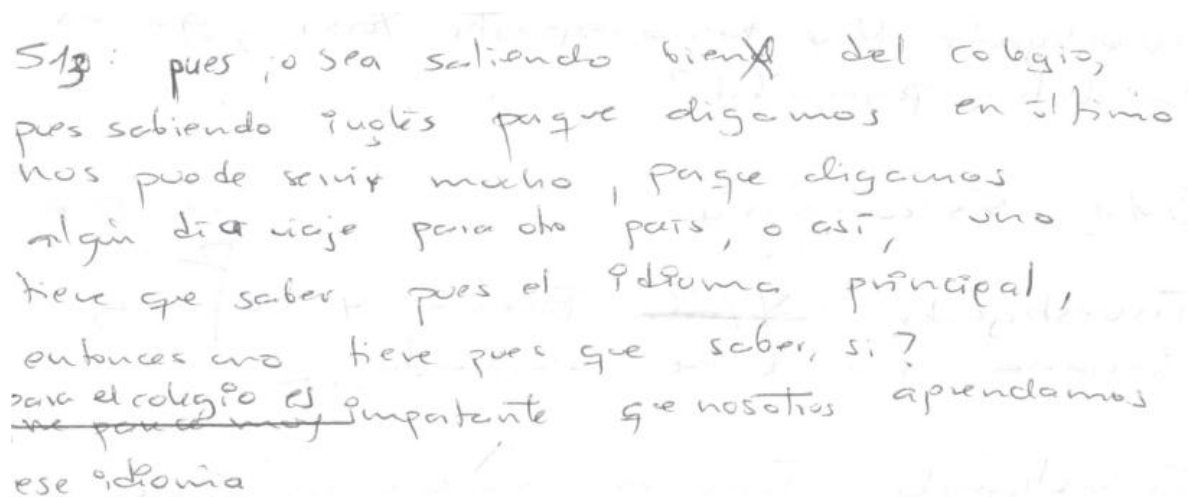 S13: pues, o sea saliendo bien del colegio,
pues sabiendo inglés porque digamos en último
nos puede servir mucho, porque digamos
algún día viaje para otro país, o así, uno
tiene que saber pues el idioma principal,
entonces uno tiene pues que saber, si?
para el colegio es importante que nosotros aprendamos
ese idioma